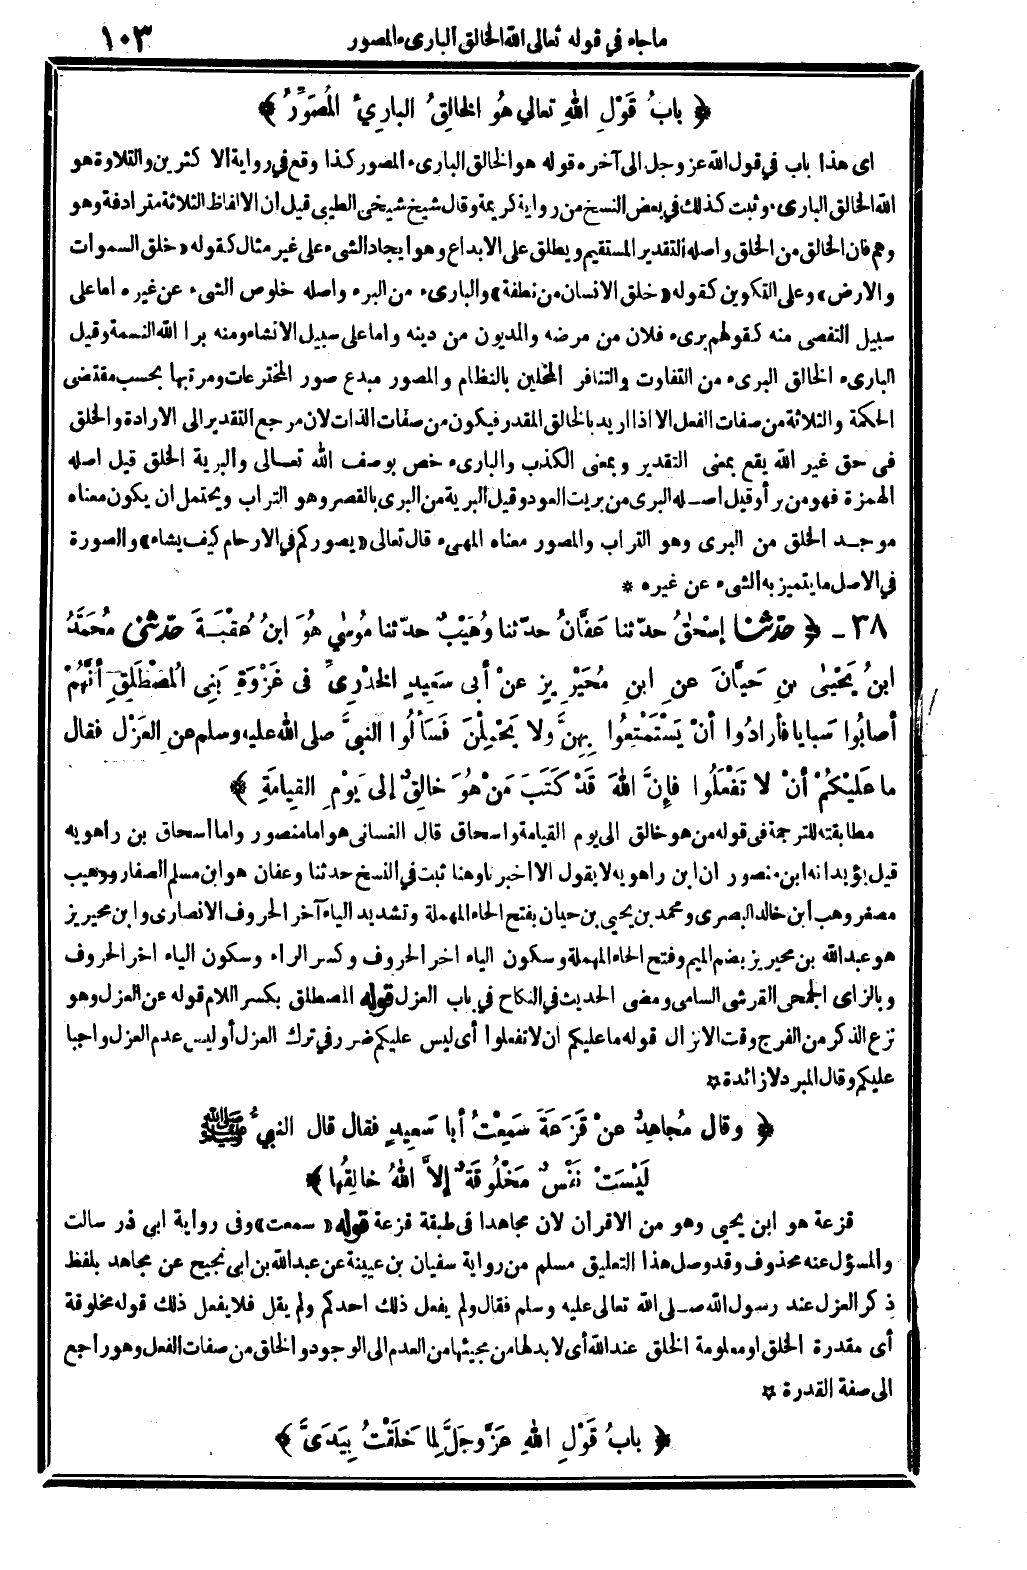 ماجاء في قوله تعالى الله الخالق البارىء المصور ١٠٣
﴿ بابُ قَوْلِ اللهِ تعالى هُو الخالِقُ البارِيءُ المُصَوِّرُ ﴾
اى هذا باب في قول الله عز وجل الى آخره قوله هو الخالق البارىء المصور كذا وقع في رواية الا كثرين والتلاوة هو
الله الخالق البارىء وثبت كذلك في بعض النسخ من رواية كريمة وقال شيخ شيخى الطيبى قيل ان الالفاظ الثلاثة مترادفة وهو
وهم فان الخالق من الخلق واصله التقدير المستقيم ويطلق على الابداع وهو ايجاد الشىء على غير مثال كقوله «خلق السموات
والارض» وعلى التكوين كقوله «خلق الانسان من نطفة» والبارىء من البرء واصله خلوص الشىء عن غيره اما على
سبيل التفصى منه كقولهم برىء فلان من مرضه والمديون من دينه واما على سبيل الانشاء ومنه برا الله النسمة وقيل
البارىء الخالق البرىء من التفاوت والتنافر المخلين بالنظام والمصور مبدع صور المخترعات ومرتبها بحسب مقتضى
الحكمة والثلاثة من صفات الفعل الا اذا اريد بالخالق المقدر فيكون من صفات الذات لان مرجع التقدير الى الارادة والخلق
فى حق غير الله يقع بمعنى التقدير وبمعنى الكذب والبارىء خص بوصف الله تعالى والبرية الخلق قيل اصله
الهمزة فهو من برأ وقيل اصله البرى من بريت العود وقيل البرية من البرى بالقصر وهو التراب ويحتمل ان يكون معناه
موجد الخلق من البرى وهو التراب والمصور معناه المهىء قال تعالى «يصوركم في الارحام كيف يشاء» والصورة
في الاصل ما يتميز به الشىء عن غيره *
٣٨ ـ ﴿ حدّثنا إسْحٰقُ حدّثنا عَفَّانُ حدّثنا وُهَيْبٌ حدّثنا مُوسٰي هُوَ ابنُ عُقْبَةَ حدّثنى مُحَمَّدُ
ابنُ يَحْيىٰ بنِ حَيَّانَ عنِ ابنِ مُحَيْرِيزٍ عنْ أبى سَعِيدٍ الخُدْرِىِّ فى غَزْوَةِ بَنِى المُصْطَلِقِ أنَّهُمْ
أصابُوا سَبايا فأرادُوا أنْ يَسْتَمْتِعُوا بِهِنَّ ولا يَحْمِلْنَ فَسَألُوا النبىَّ صلى الله عليه وسلم عنِ العَزْلِ فقال
ما عَلَيْكُمْ أنْ لا تَفْعَلُوا فإنَّ اللهَ قَدْ كَتَبَ مَنْ هُوَ خالِقٌ إلى يَوْمِ القِيامَةِ ﴾
مطابقته للترجمة فى قوله من هو خالق الى يوم القيامة واسحاق قال الغسانى هو اما منصور واما أسحاق بن راهويه
قيل يؤيد انه ابن منصور ان ابن راهويه لا يقول الا اخبرنا وهنا ثبت في النسخ حدثنا وعفان هو ابن مسلم الصفار ووهيب
مصغر وهب ابن خالد البصرى ومحمد بن يحيى بن حيان بفتح الحاء المهملة وتشديد الياء آخر الحروف الانصارى وابن محيريز
هو عبدالله بن محيريز بضم الميم وفتح الحاء المهملة وسكون الياء اخر الحروف وكسر الراء وسكون الياء اخر الحروف
وبالزاى الجمحى القرشى السامى ومضى الحديث في النكاح في باب العزل قوله المصطلق بكسر اللام قوله عن العزل وهو
نزع الذكر من الفرج وقت الانزال قوله ما عليكم ان لا تفعلوا أى ليس عليكم ضرر في ترك العزل أو ليس عدم العزل واجبا
عليكم وقال المبرد لا زائدة ☆
﴿ وقال مُجاهِدٌ عنْ قَزَعَةَ سَمِعْتُ أبا سَعِيدٍ فقال قال النبيُّ ﷺ
لَيْسَتْ نَفْسٌ مَخْلُوقَةٌ إلاَّ اللهُ خالِقُها ﴾
قزعة هو ابن يحيى وهو من الاقران لان مجاهدا فى طبقة قزعة قوله «سمعت» وفى رواية ابى ذر سالت
والمسؤل عنه محذوف وقد وصل هذا التعليق مسلم من رواية سفيان بن عيينة عن عبدالله بن ابى نجيح عن مجاهد بلفظ
ذكر العزل عند رسول الله صلى الله تعالى عليه وسلم فقال ولم يفعل ذلك احدكم ولم يقل فلا يفعل ذلك قوله مخلوقة
أى مقدرة الخلق او معلومة الخلق عند الله أى لا بد لها من مجيئها من العدم الى الوجود والخلق من صفات الفعل وهو راجع
الى صفة القدرة ☆
﴿ بابُ قَوْلِ اللهِ عَزَّ وجَلَّ لِما خَلَقْتُ بِيَدَىَّ ﴾